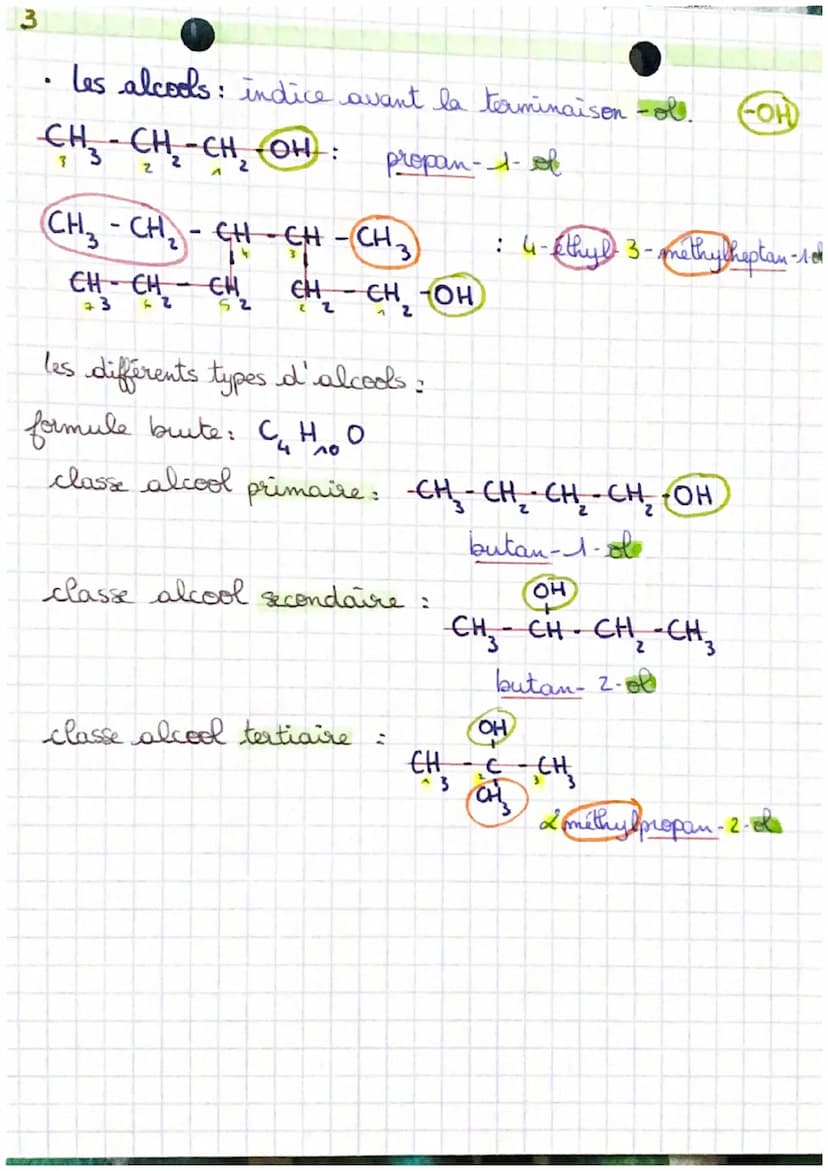 3
. Les alcools : indice avant la terminaison -ol. -OH
CH3 - CH2 - CH2 - OH : propan-1-ol
3 2 1
CH3 - CH2 - CH - CH - CH3 : 4-éthyl-3-méthylheptan-1-ol
4 3
CH3 - CH2 - CH2 CH2 - CH2 - OH
7 6 5 2 1
les différents types d'alcools :
formule brute : C4 H10 O
classe alcool primaire : CH3 - CH2 - CH2 - CH2 - OH
butan-1-ol
classe alcool secondaire : OH
CH3 - CH - CH2 - CH3
butan-2-ol
classe alcool tertiaire : OH
CH3 - C - CH3
1 2 3
CH3
2 méthylpropan-2-ol